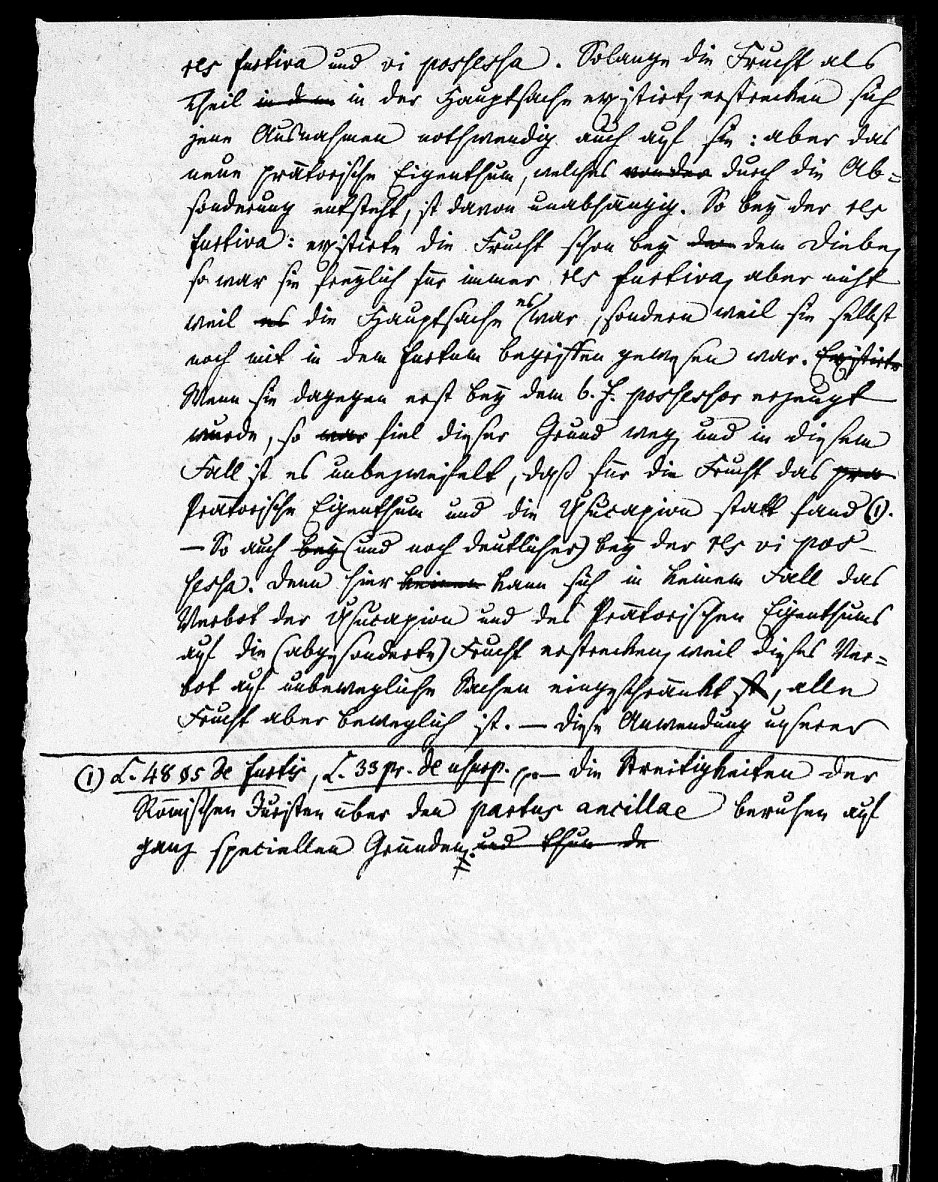 res furtiva und vi possessa. Solange die Frucht als
Theil in dem in der Hauptsache existirt, erstrecken sich
jene Ausnahmen nothwendig auch auf sie: aber das
neue prätorische Eigenthum, welches von der durch die Ab=
sonderung entsteht, ist davon unabhängig. So bey der res
furtiva: existirte die Frucht schon bey der dem Diebe,
so war sie freylich für immer res furtiva, aber nicht
weil es die Hauptsache es war, sondern weil sie selbst
noch mit in dem furtum begriffen gewesen war. Existirte
Wenn sie dagegen erst bey dem b. f. possessor erzeugt
wurde, so war fiel dieser Grund weg, und in diesem
Fall ist es unbezweifelt, daß für die Frucht das prä
Prätorische Eigenthum und die Usucapion statt fand (1).
— So auch bey (und noch deutlicher) bey der res vi pos-
sessa. Denn hier keinen kann sich in keinem Fall das
Verbot der Usucapion und des Prätorischen Eigenthums
auf die (abgesonderte) Frucht erstrecken, weil dieses Ver=
bot auf unbewegliche Sachen eingeschränkt ist, alle
Frucht aber beweglich ist. — Diese Anwendung unserer
(1) L. 48 § 5 de furtis, L. 33 pr. de usurp. — die Streitigkeiten der
Römischen Juristen über den partus ancillae beruhen auf
ganz speciellen Gründen. und thun de